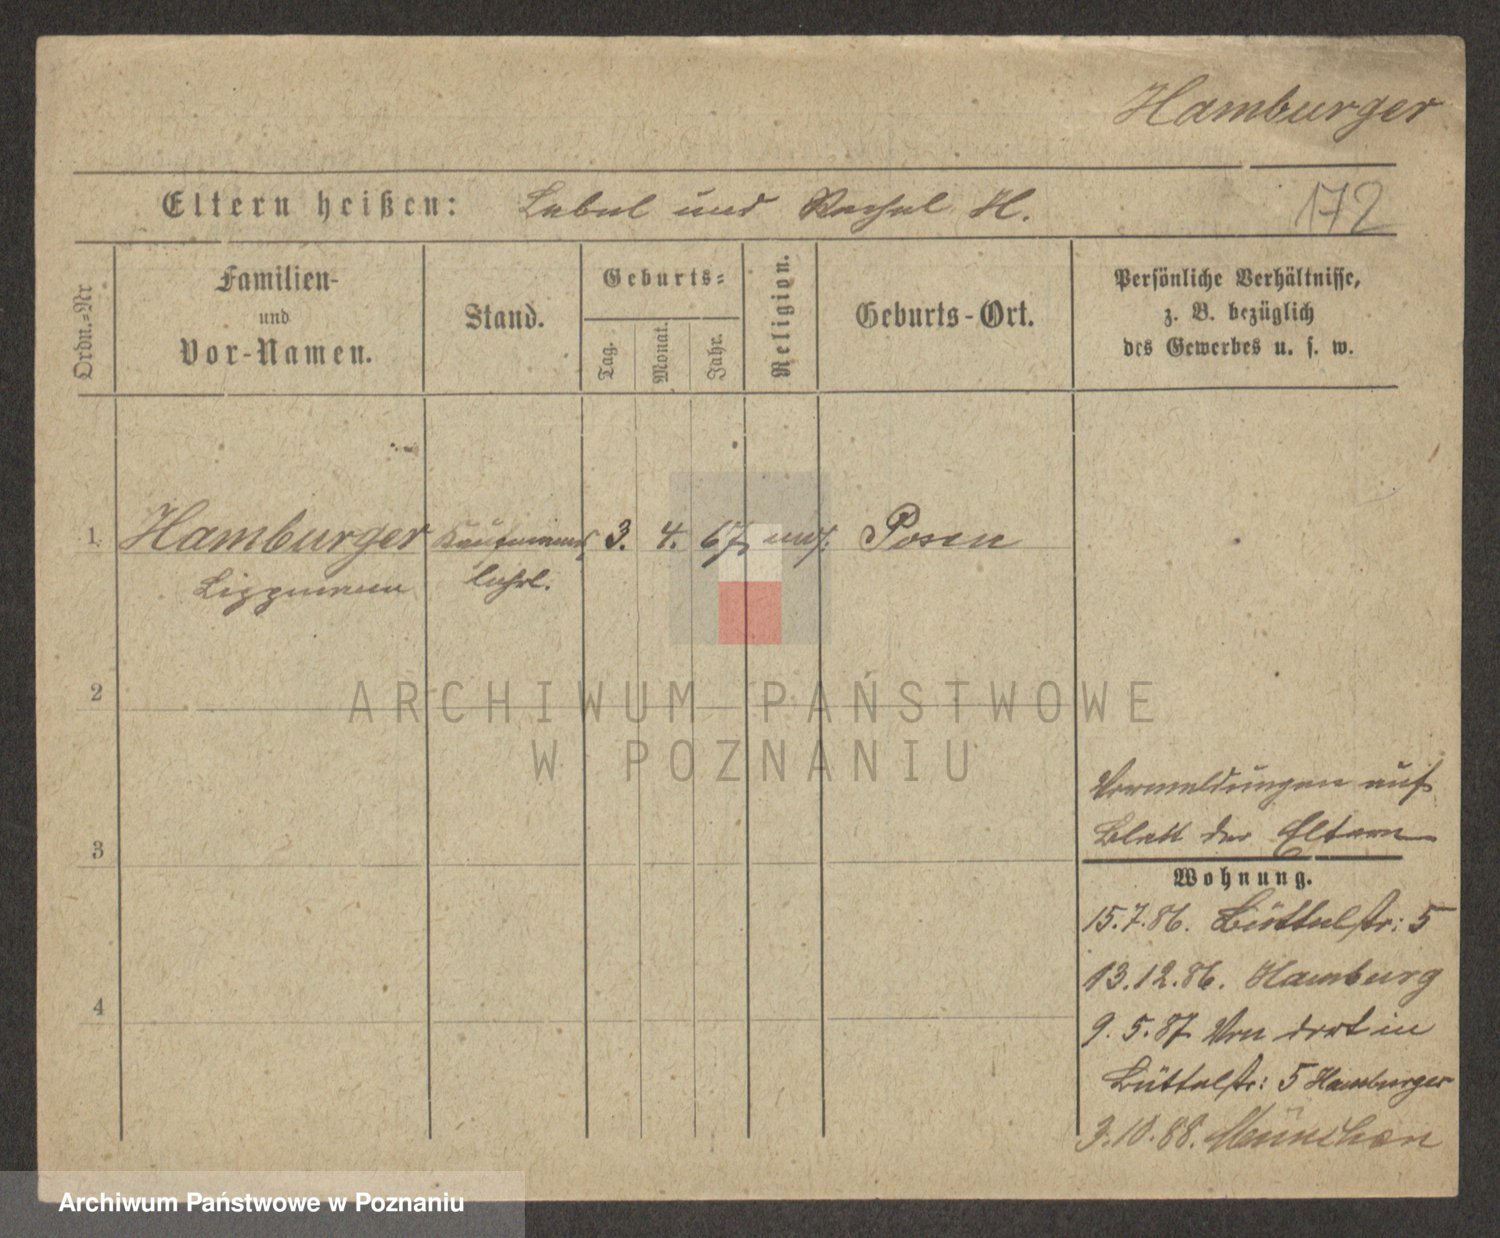 Hamburger
Eltern heißen: Lebel und Rachel H.
172
Ordn.-Nr
Familien-
und
Vor-Namen.
Stand.
Geburts-
Tag.
Monat.
Jahr.
Religion.
Geburts-Ort.
Persönliche Verhältnisse,
z. B. bezüglich
des Gewerbes u. s. w.
1 Hamburger Kaufmanns 3. 4. 67 mos. Posen
Lippmann lehrl.
2
ARCHIWUM PAŃSTWOWE
W POZNANIU
Vormeldungen auf
Blatt der Eltern
3
Wohnung.
15.7.86. Büttelstr: 5
13.12.86. Hamburg
4
9.5.87 Von dort in
Büttelstr: 5 Hamburger
3.10.88. München
Archiwum Państwowe w Poznaniu